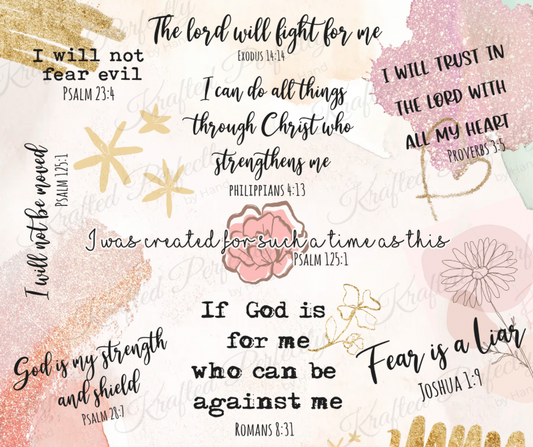 The lord will fight for me
Exodus 14:14
I will not
fear evil
Psalm 23:4
I can do all things
through Christ who
strengthens me
Philippians 4:13
I WILL TRUST IN
THE LORD WITH
ALL MY HEART
Proverbs 3:5
I will not be moved
Psalm 125:1
I was created for such a time as this
Psalm 125:1
God is my strength
and shield
Psalm 28:7
If God is
for me
who can be
against me
Romans 8:31
Fear is a Liar
Joshua 1:9
Krafted Perfectly